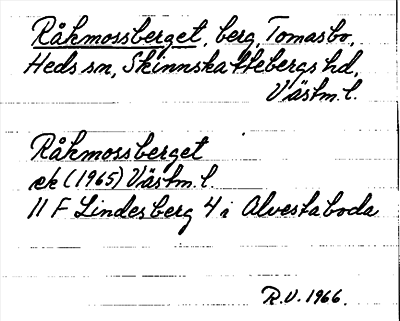 Råkmossberget, berg, Tomasbo,
Heds sn, Skinnskattebergs hd,
Västm. l.
Råkmossberget
ek (1965) Västm. l.
11 F Lindesberg 4 i Alvestaboda
R.V. 1966.